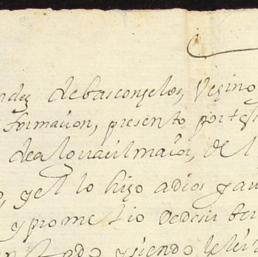 ndez debasconzelos, Vezino
formazion, presento por tes
de alguazil maior, del
s, y el lo hizo a dios y a u
y prometio de desir ber
ndo y siendo le